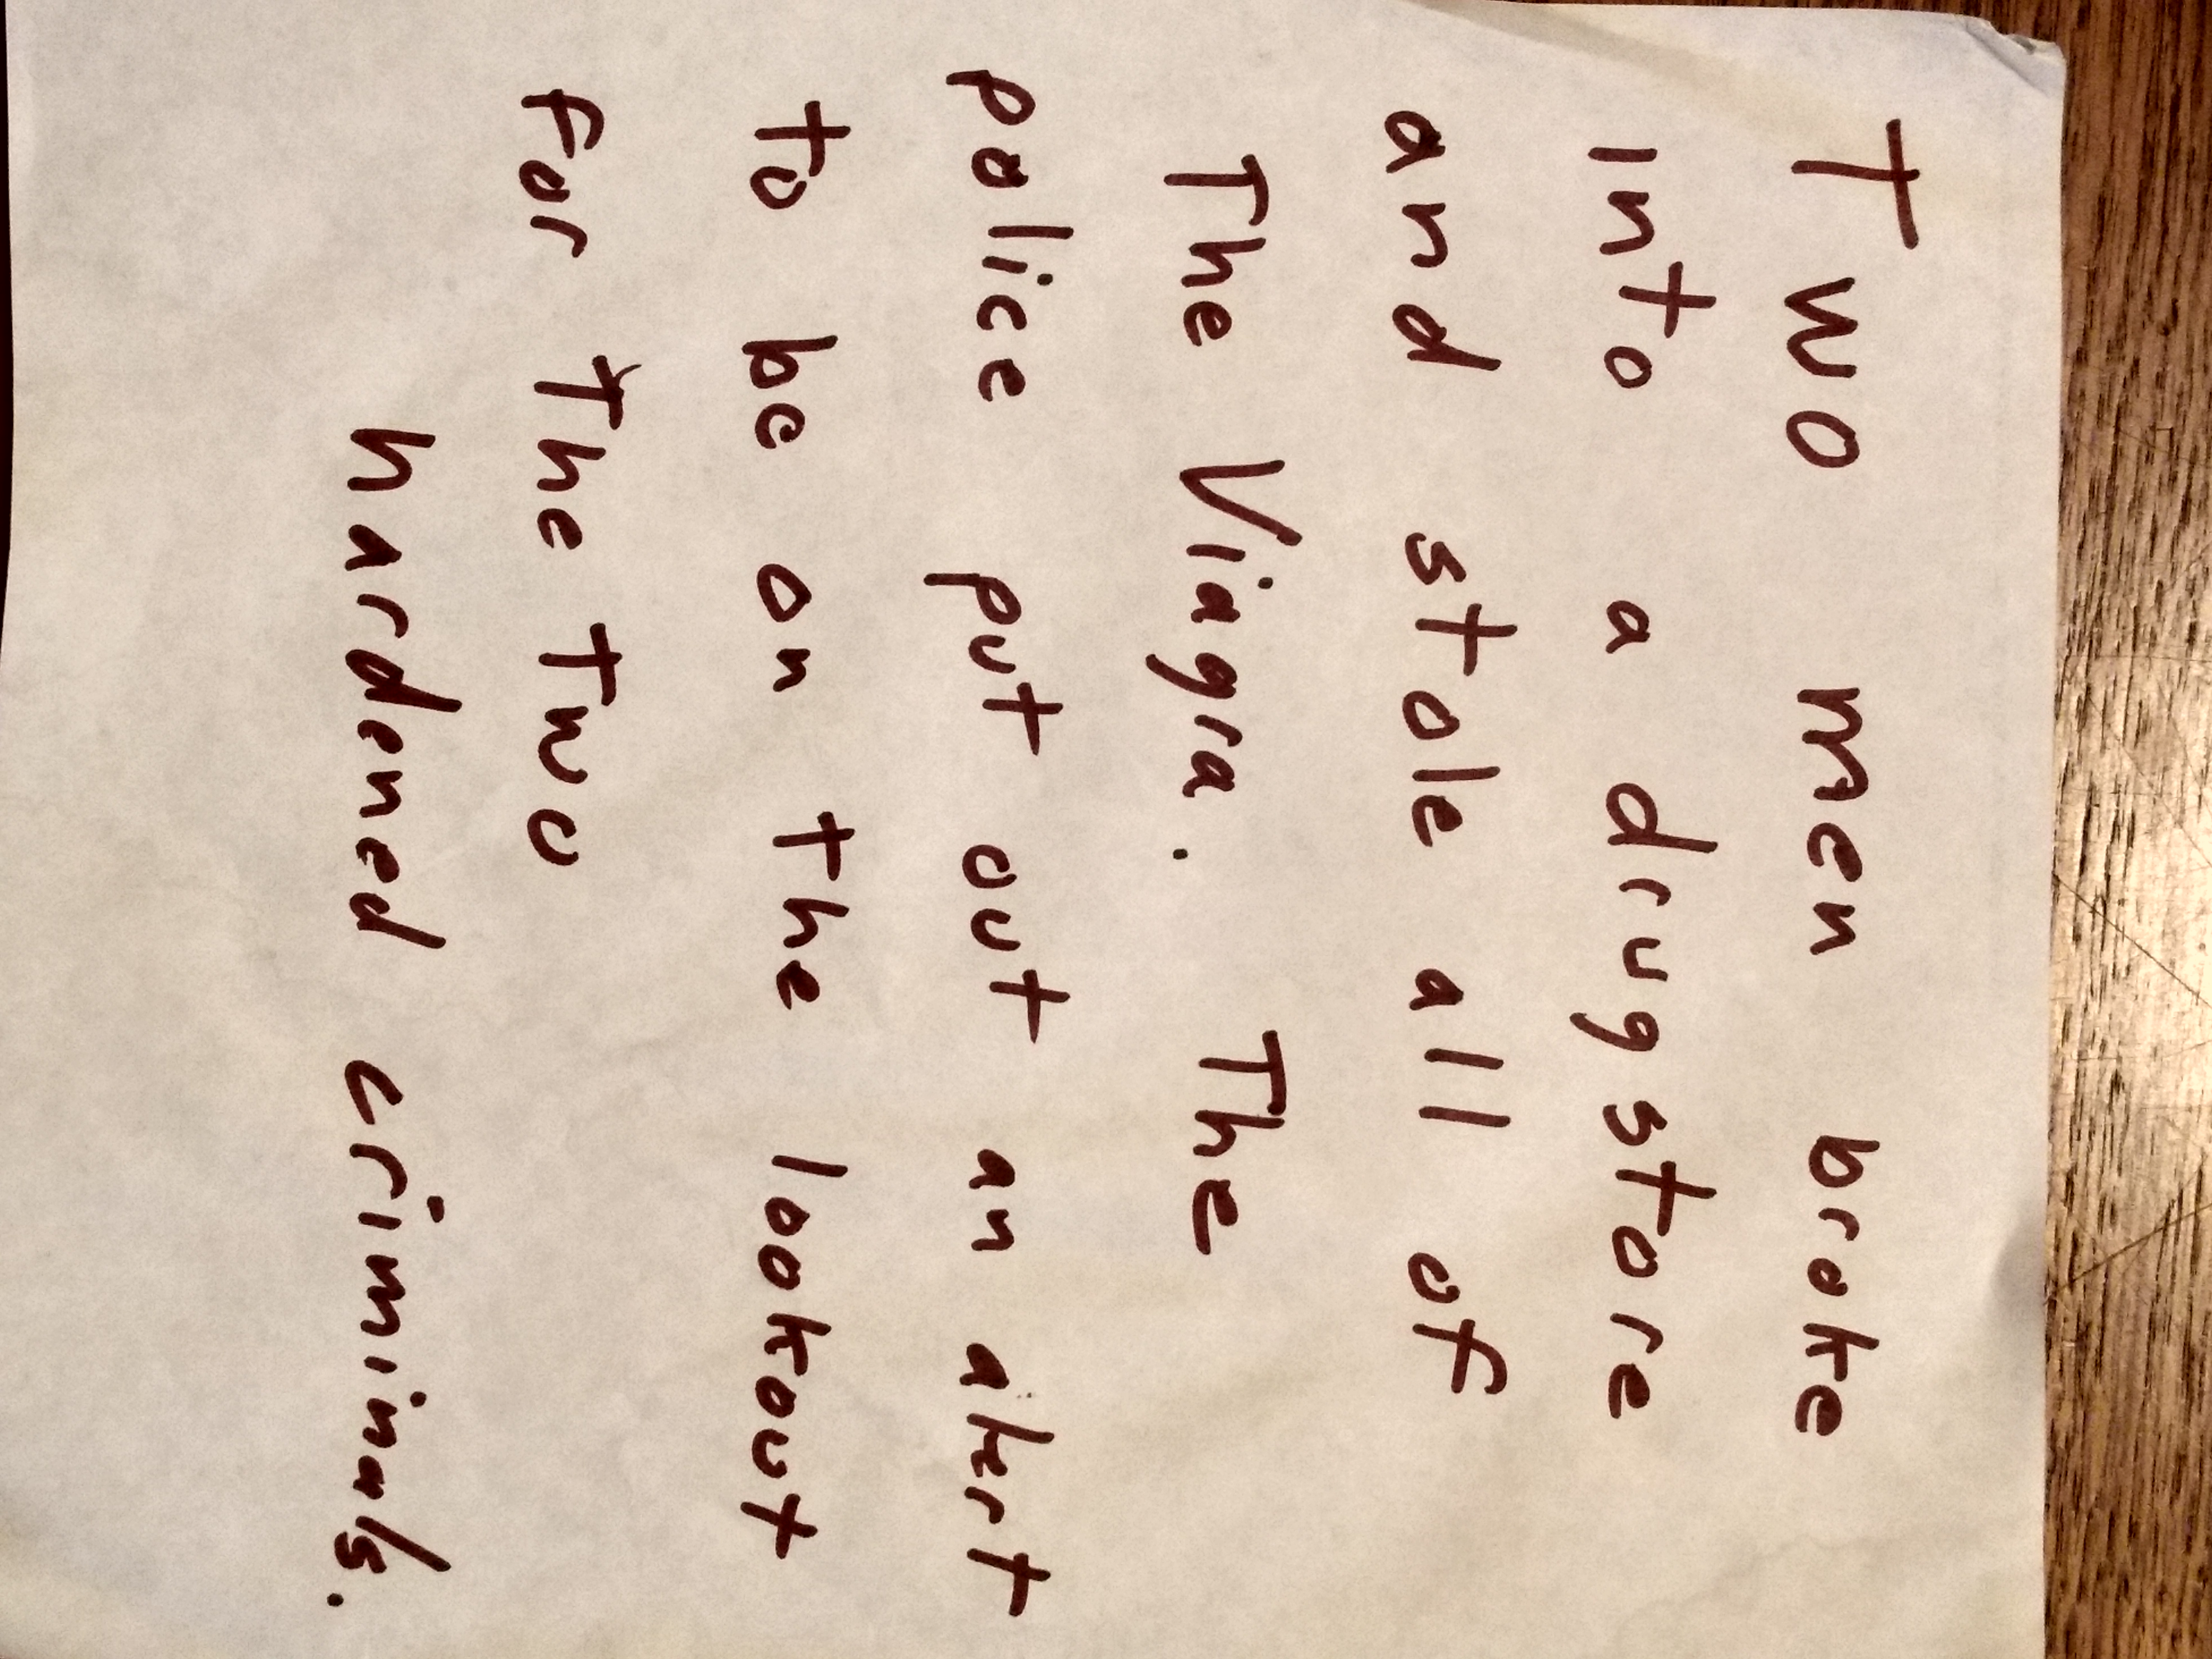 Two men broke
into a drugstore
and stole all of
The Viagra. The
police put out an alert
to be on the lookout
for The Two
hardened criminals.